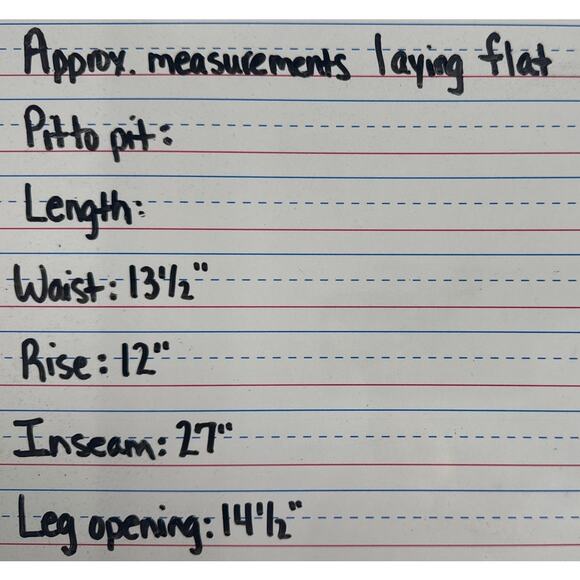 Approx. measurements laying flat
Pit to pit:
Length:
Waist: 13½"
Rise: 12"
Inseam: 27"
Leg opening: 14½"